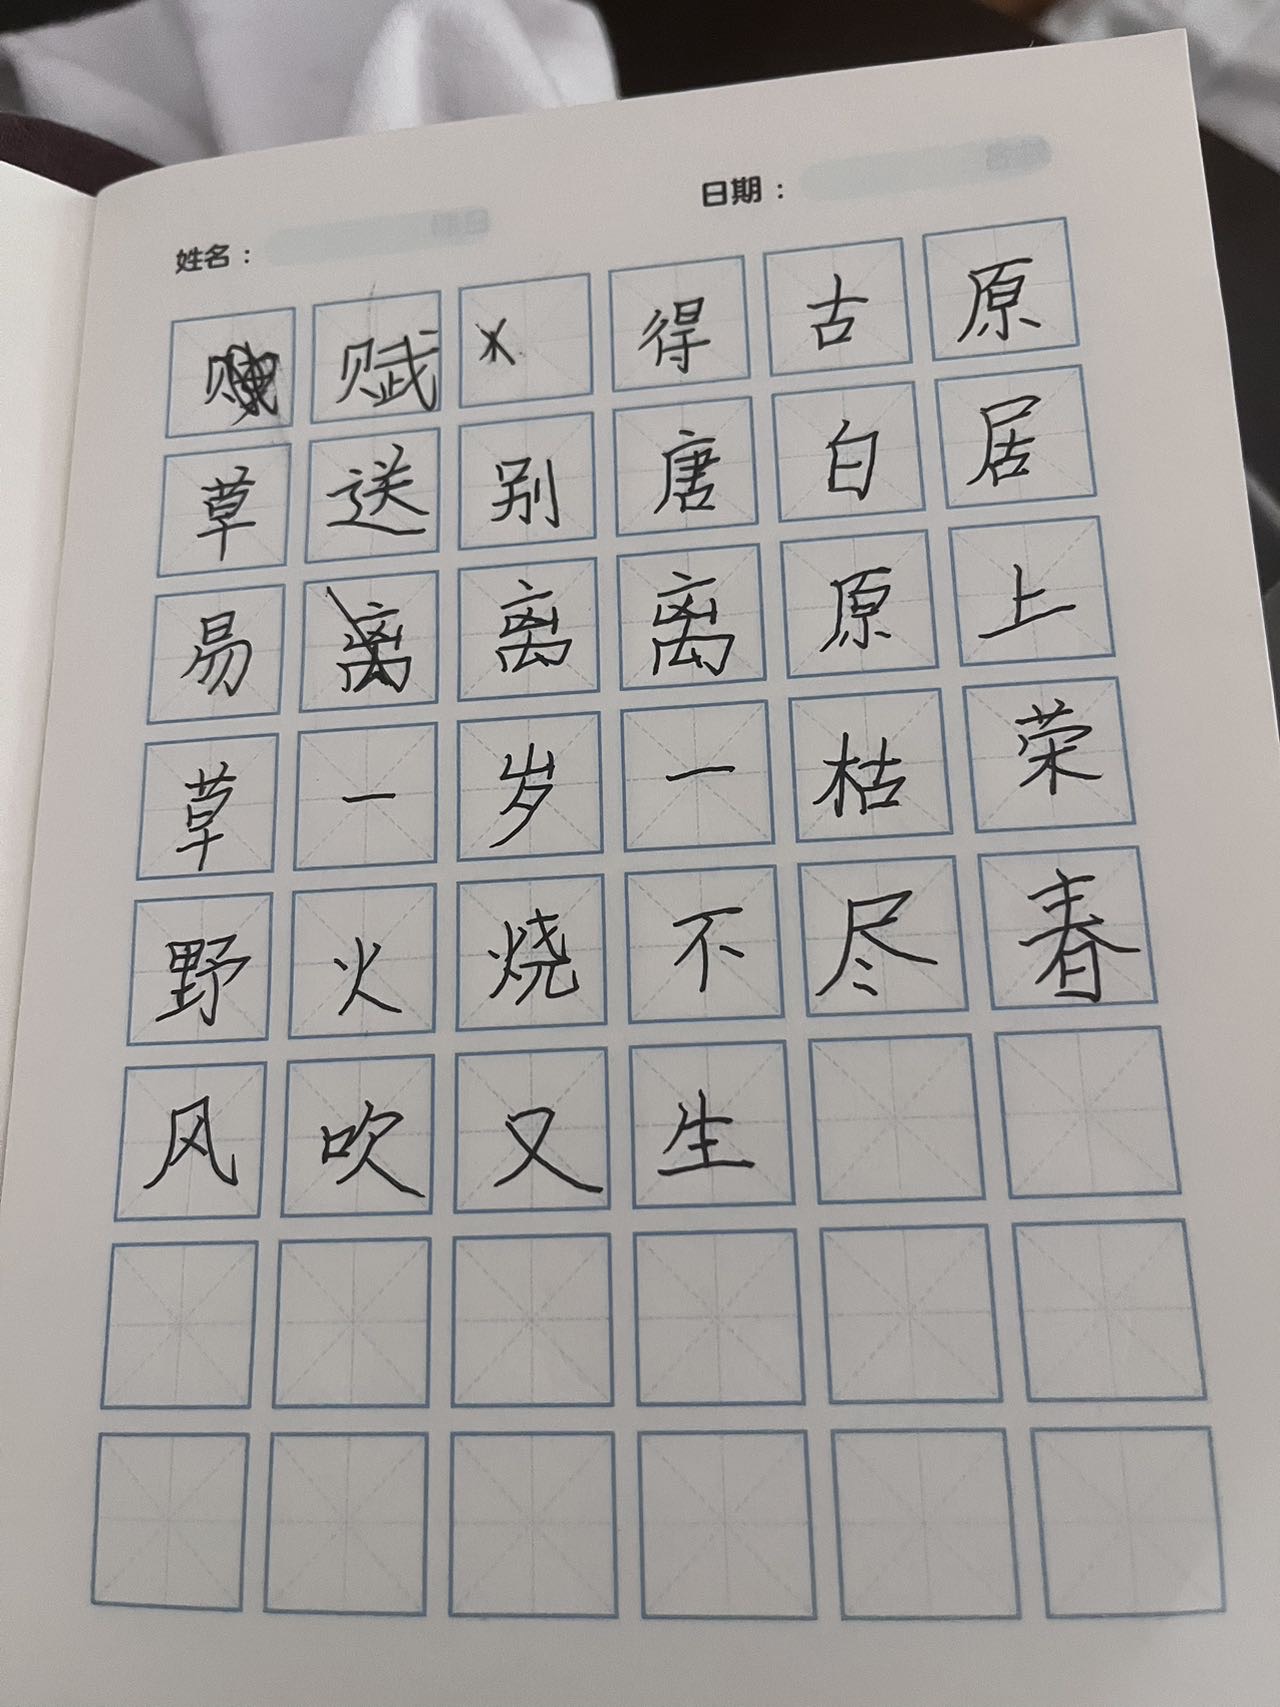 姓名： 日期：
赋 得 古 原
草 送 别 唐 白 居
易 离 离 原 上
草 一 岁 一 枯 荣
野 火 烧 不 尽 春
风 吹 又 生